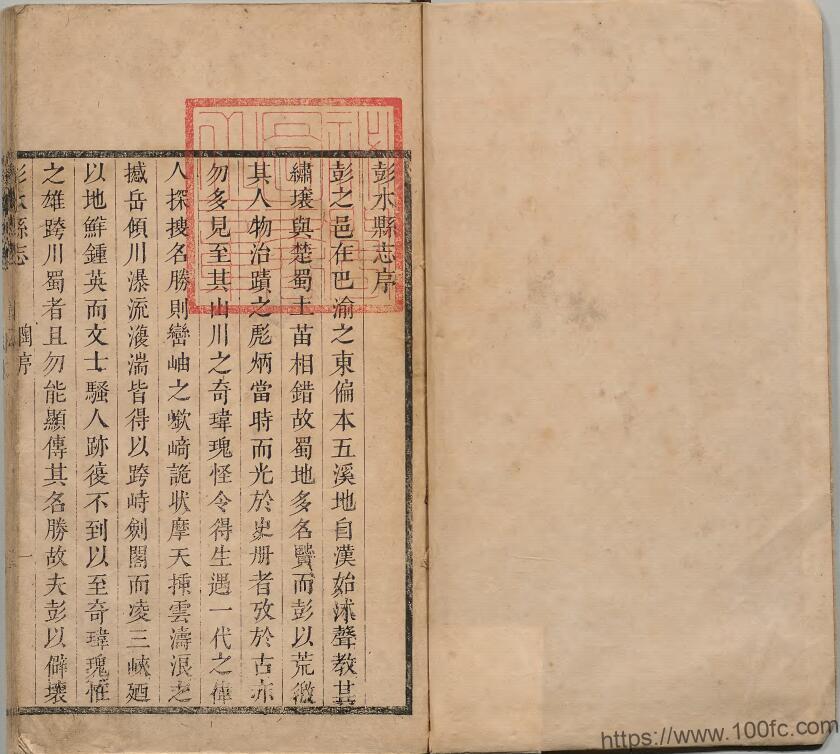 彭水縣志序
彭之邑在巴渝之東偏本五溪地自漢始沐聲教其
繡壤與楚蜀土苗相錯故蜀地多名賢而彭以荒徼
其人物治蹟之彪炳當時而光於史册者攷於古亦
勿多見至其山川之奇瑋瑰怪令得生遇一代之偉
人探搜名勝則巒岫之嶔崎詭狀摩天揷雲濤浪之
撼岳傾川瀑流漩湍皆得以跨峙劍閣而凌三峽廼
以地鮮鍾英而文士騷人跡復不到以至奇瑋瑰怪
之雄跨川蜀者且勿能顯傳其名勝故夫彭以僻壤
彭水縣志
陶序
一
https://www.100fc.com